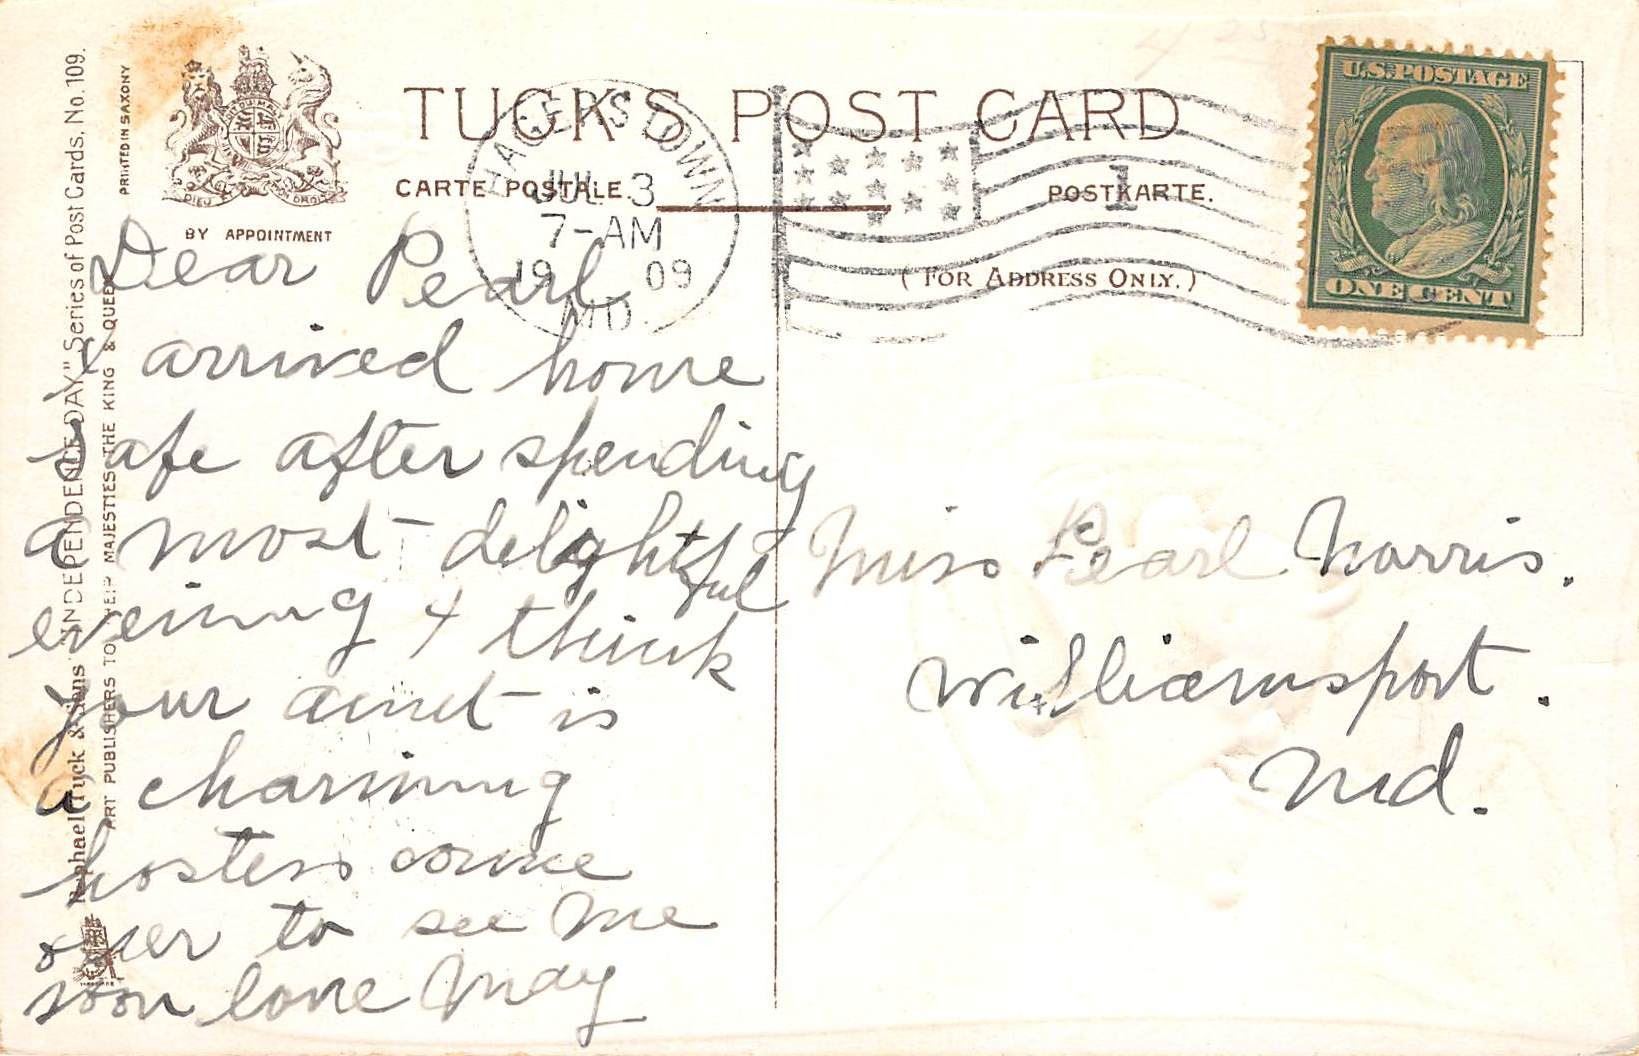 TUCK'S POST CARD
CARTE POSTALE.
POSTKARTE.
(FOR ADDRESS ONLY.)
BY APPOINTMENT
DIEU ET MON DROIT
HAGERSTOWN
JUL 3
7-AM
19 09
MD.
1
U.S. POSTAGE
ONE CENT
PRINTED IN SAXONY
Raphael Tuck & Sons' "INDEPENDENCE DAY" Series of Post Cards, No. 109.
ART PUBLISHERS TO THEIR MAJESTIES THE KING & QUEEN
Dear Pearl
I arrived home
safe after spending
a most delightful
evening & think
your aunt is
a charming
hostess come
over to see me
soon love May
Miss Pearl Norris.
Williamsport.
Md.